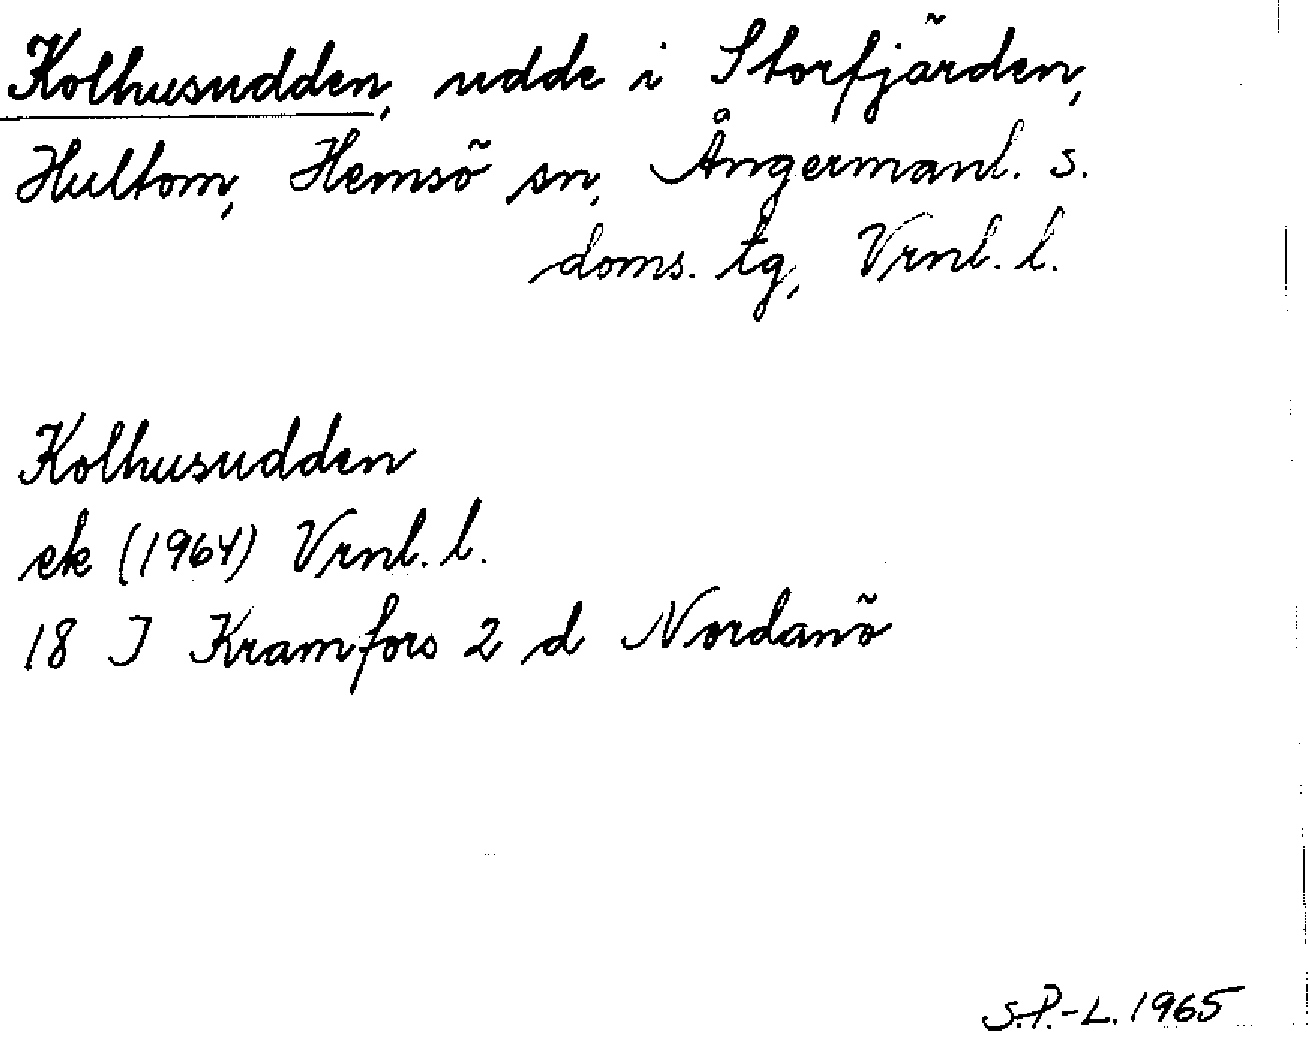 Kolhusudden, udde i Storfjärden,
Hultom, Hemsö sn, Ångermanl. s.
doms. tg, Vrnl. l.
Kolhusudden
ek (1964) Vrnl. l.
18 J Kramfors 2 d Nordanö
S.P.-L. 1965